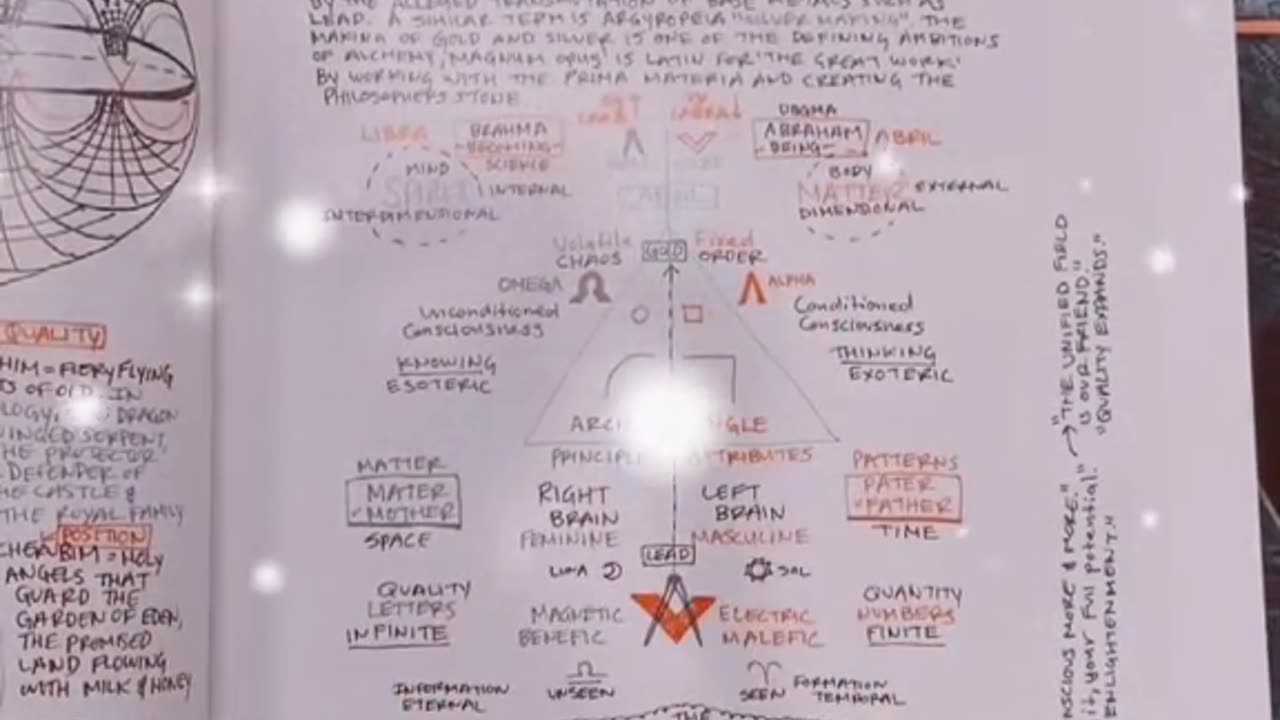 BY THE ALLEGED TRANSMUTATION OF BASE METALS SUCH AS
LEAD. A SIMILAR TERM IS ARGYROPEIA "SILVER MAKING". THE
MAKING OF GOLD AND SILVER IS ONE OF THE DEFINING AMBITIONS
OF ALCHEMY, 'MAGNUM OPUS' IS LATIN FOR 'THE GREAT WORK'
BY WORKING WITH THE PRIMA MATERIA AND CREATING THE
PHILOSOPHERS STONE
LIBRA
BRAHMA
-BECOMING-
SCIENCE
DOGMA
ABRAHAM
-BEING-
ABRIL
MIND
SPIRIT
INTERNAL
INTERDIMENSIONAL
BODY
MATTER EXTERNAL
DIMENDONAL
Volatile
CHAOS
GOLD
Fixed
ORDER
OMEGA Ω
Λ ALPHA
Unconditioned
Consciousness
Conditioned
Consciousness
KNOWING
ESOTERIC
THINKING
EXOTERIC
ARCH
NGLE
ATTRIBUTES
MATTER
MATER
"MOTHER"
SPACE
RIGHT
BRAIN
FEMININE
LEFT
BRAIN
MASCULINE
PATTERNS
PATER
"FATHER"
TIME
LEAD
LUNA
SOL
QUALITY
LETTERS
INFINITE
MAGNETIC
BENEFIC
ELECTRIC
MALEFIC
QUANTITY
NUMBERS
FINITE
INFORMATION
ETERNAL
♎
UNSEEN
♈
SEEN
FORMATION
TEMPORAL
THE
QUALITY
HIM = FIERY FLYING
TS OF OLD. IN
DRAGON
WINGED SERPENT
THE PROTECTOR
DEFENDER OF
HE CASTLE &
THE ROYAL FAMILY
POSITION
CHERUBIM = HOLY
ANGELS THAT
GUARD THE
GARDEN OF EDEN,
THE PROMISED
LAND FLOWING
WITH MILK & HONEY
NSCIOUS MORE & MORE." → "THE UNIFIED FIELD
IS OUR FRIEND."
it, your full potential. "QUALITY EXPANDS."
ENLIGHTENMENT."